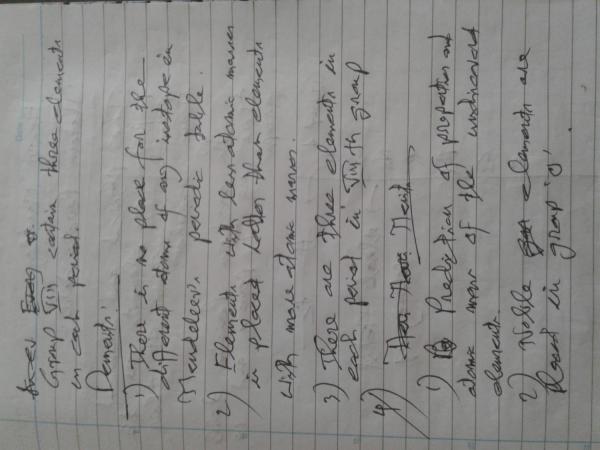 Group VIII contain three elements
in each period.
Demerits:
1) There is no place for the
different atoms of any isotope in
Mendeleev's periodic table.
2) Elements with less atomic masses
is placed latter than elements
with more atomic masses.
3) There are three elements in
each period in VIII th group
4)
Merit
1) Prediction of properties and
atomic mass of the undiscovered
elements.
2) Noble elements are
placed in group '0'.